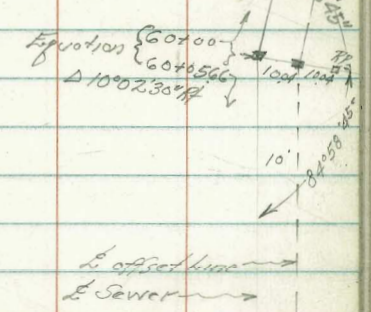 45"
Equation { 60+00
60+05.66 }
Δ 10°02'30" Rt.
10.04 10.04
RP
10'
84°58'45"
℄ offset Line
℄ Sewer